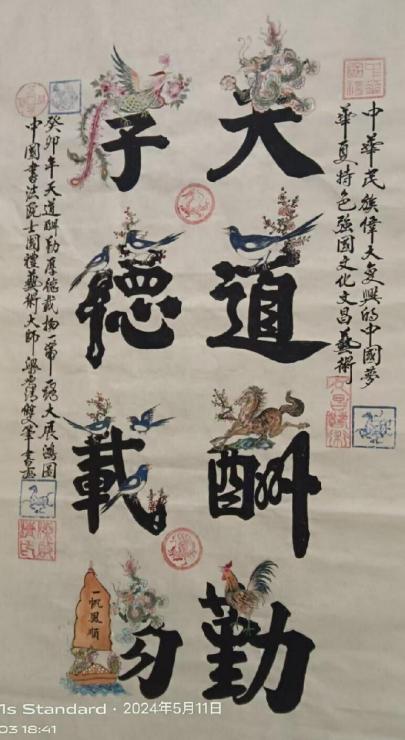 中華民族偉大復興的中國夢
華夏特色強國文化文昌藝術
天道酬勤
厚德載物
一帆風順
癸卯年天道酬勤厚德載物一帶一路大展鴻圖
中國書法院士國禮藝術大師
1s Standard · 2024年5月11日
03 18:41